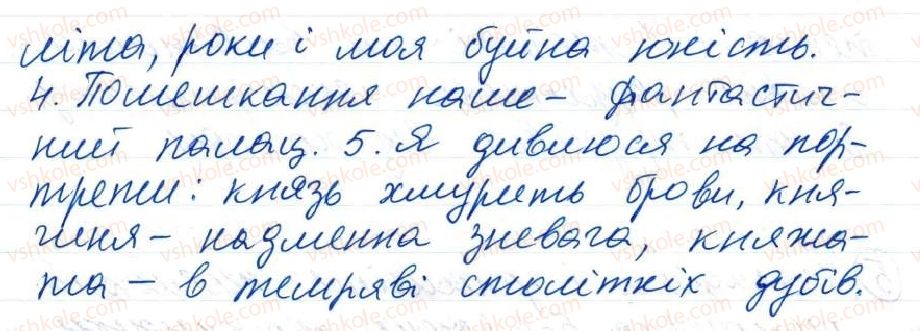 літа, роки і моя буйна юність.
4. Помешкання наше - фантастич-
ний палац. 5. Я дивлюся на пор-
трети: князь хмурить брови, кня-
гиня - надменна зневага, княжа-
та - в темряві столітніх дубів.